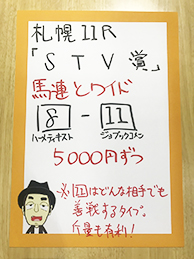 札幌11R
「STV賞」
馬連とワイド
8-11
ハーメティキスト ジョブックコメン
5000円ずつ
※11はどんな相手でも
善戦するタイプ。
斤量も有利!